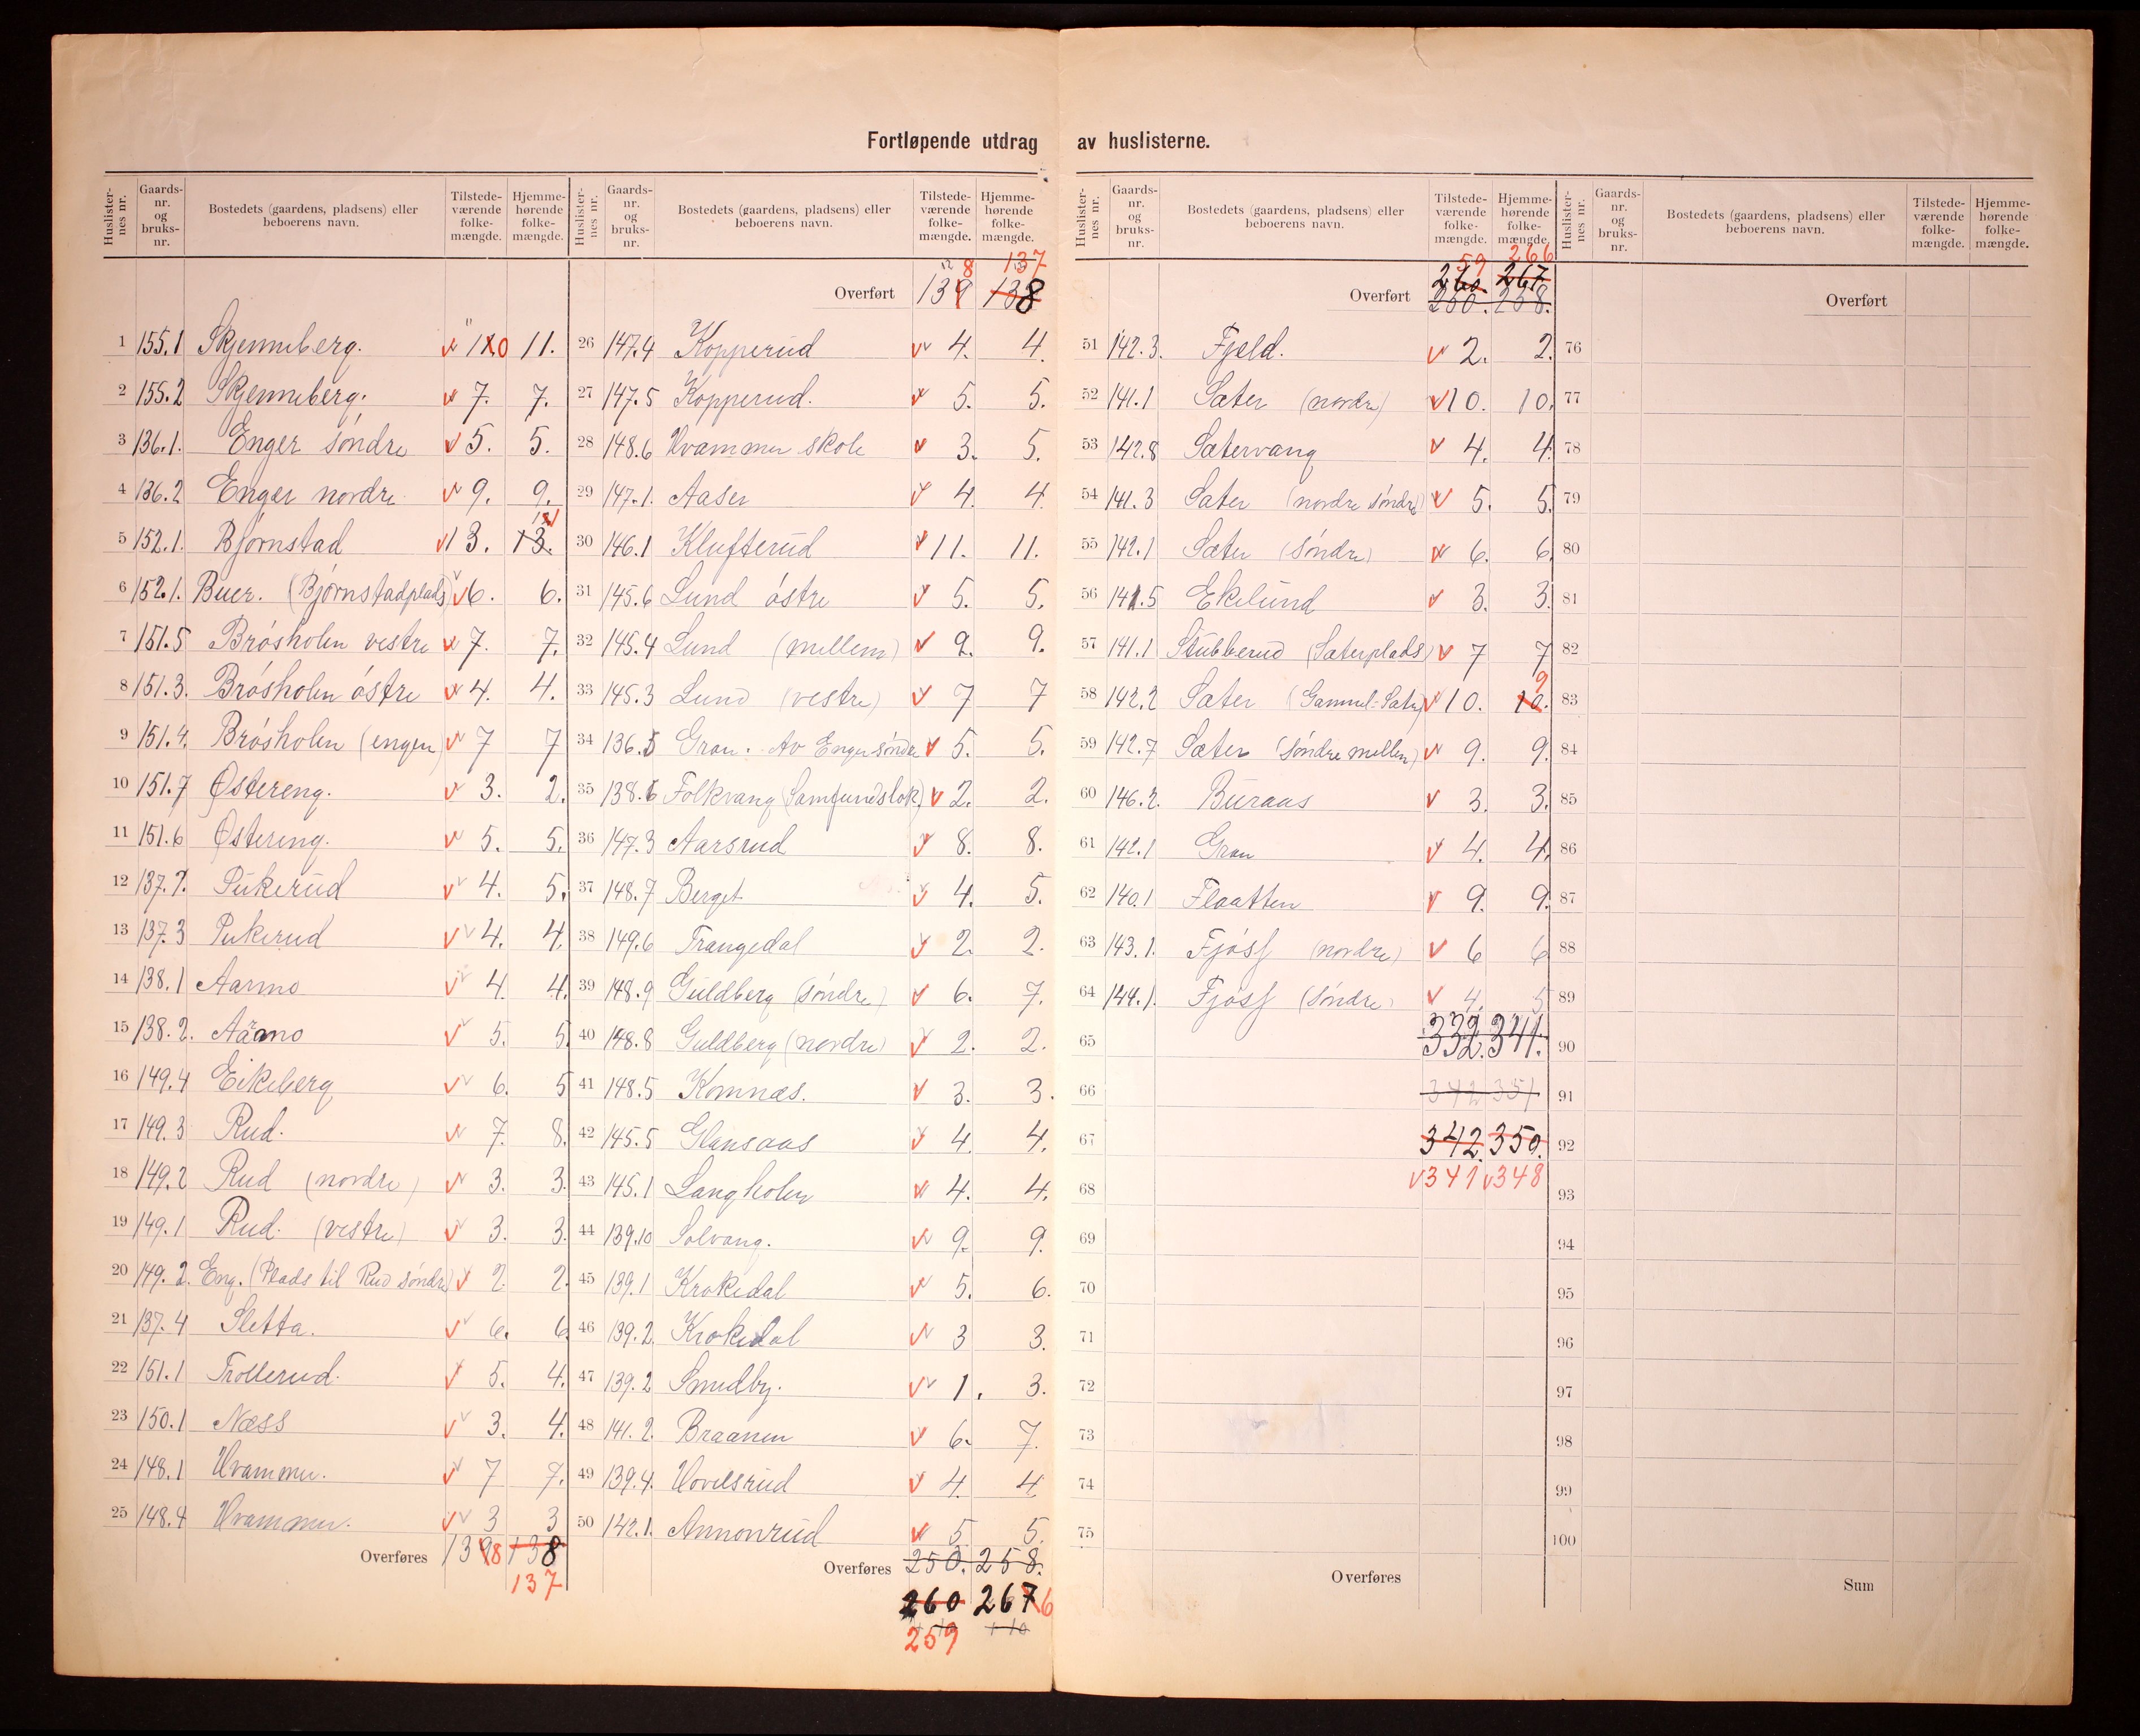 Fortløpende utdrag av huslisterne.
Huslister-nes nr. Gaards-nr. og bruks-nr. Bostedets (gaardens, pladsens) eller beboerens navn. Tilstede-værende folke-mængde. Hjemme-hørende folke-mængde.
1 155.1 Skjenneberg. 10 11.
2 155.2 Skjenneberg. 7. 7.
3 136.1. Enger søndre 5. 5.
4 136.2 Enger nordre 9. 9.
5 152.1. Bjørnstad 13. 13.
6 152.1. Buer. (Bjørnstadplads) 6. 6.
7 151.5 Brøsholen vestre 7. 7.
8 151.3. Brøsholen østre 4. 4.
9 151.4. Brøsholen (engen) 7 7
10 151.7 Østereng. 3. 2.
11 151.6 Østereng. 5. 5.
12 137.2. Pukerud 4. 5.
13 137.3 Pukerud 4. 4.
14 138.1 Aarmo 4 4.
15 138.2. Aarmo 5. 5
16 149.4 Eikeberg 6. 5
17 149.3 Rud. 7. 8.
18 149.2 Rud (nordre) 3. 3.
19 149.1 Rud. (vestre) 3. 3.
20 149.2. Eng. (Plads til Rud søndre) 2 2.
21 137.4 Sletta. 6. 6
22 151.1 Trollerud. 5. 4.
23 150.1 Næss 3. 4.
24 148.1 Hvammer. 7 7.
25 148.4 Hvammer. 3 3
Overføres 139 8 138
137
Huslister-nes nr. Gaards-nr. og bruks-nr. Bostedets (gaardens, pladsens) eller beboerens navn. Tilstede-værende folke-mængde. Hjemme-hørende folke-mængde.
8 137
Overført 139 138
26 147.4 Kopperud 4. 4.
27 147.5 Kopperud. 5. 5.
28 148.6 Hvammer skole 3. 5.
29 147.1. Aaser 4. 4.
30 146.1 Klufterud 11. 11.
31 145.6 Lund østre 5. 5.
32 145.4 Lund (mellem) 9. 9.
33 145.3 Lund (vestre) 7 7
34 136.5 Gran. Av Enger søndre 5. 5.
35 138.6 Folkvang (Samfundslok) 2. 2.
36 147.3 Aarsrud 8. 8.
37 148.7 Berget 4. 5.
38 149.6 Trangedal 2. 2.
39 148.9 Guldberg (søndre) 6. 7.
40 148.8 Guldberg (nordre) 2. 2.
41 148.5 Komnæs. 3. 3.
42 145.5 Glensaas 4. 4.
43 145.1 Langholen 4. 4.
44 139.10 Solvang. 9. 9.
45 139.1 Krokedal 5. 6.
46 139.2. Krokedal 3 3.
47 139.2 Smedby. 1. 3.
48 141.2. Braanen 6. 7.
49 139.4. Hovelsrud 4. 4
50 142.1. Annonrud 5. 5.
Overføres 250. 258.
260 267 6
259 +10
Huslister-nes nr. Gaards-nr. og bruks-nr. Bostedets (gaardens, pladsens) eller beboerens navn. Tilstede-værende folke-mængde. Hjemme-hørende folke-mængde.
59 266
260. 267.
Overført 250. 258.
51 142.3. Fjeld. 2. 2.
52 141.1 Sæter (nordre) 10. 10.
53 142.8 Sætervang 4. 4.
54 141.3 Sæter (nordre søndre) 5. 5.
55 142.1 Sæter (søndre) 6. 6.
56 141.5 Ekelund 3. 3.
57 141.1 Stubberud (Sæterplads) 7 7
9
58 142.2 Sæter (Gammel-Sæter) 10. 10.
59 142.7 Sæter (søndre mellem) 9. 9.
60 146.2. Buraas 3. 3.
61 142.1 Gran 4. 4.
62 140.1 Flaatten 9. 9.
63 143.1. Fjøsf (nordre) 6 6
64 144.1. Fjøsf (søndre) 4. 5
332. 341.
65 332. 341.
66 342 351
67 342. 350.
68 341 348
69
70
71
72
73
74
75
Overføres
Huslister-nes nr. Gaards-nr. og bruks-nr. Bostedets (gaardens, pladsens) eller beboerens navn. Tilstede-værende folke-mængde. Hjemme-hørende folke-mængde.
Overført
76
77
78
79
80
81
82
83
84
85
86
87
88
89
90
91
92
93
94
95
96
97
98
99
100
Sum